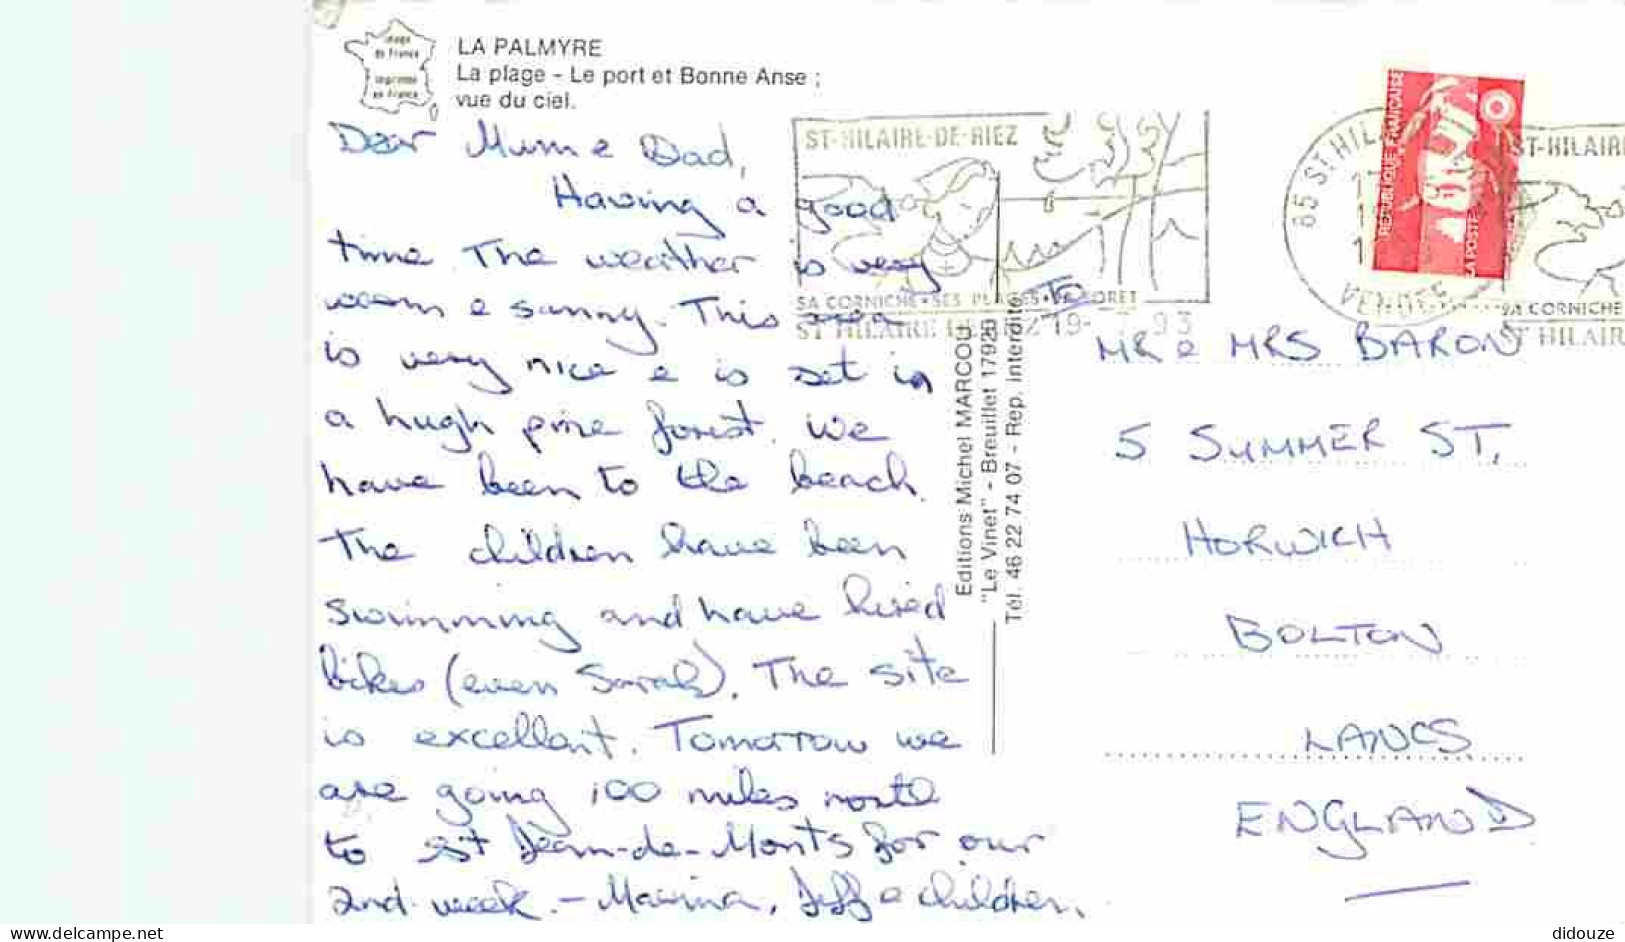 image
de France
imprimé
en France
LA PALMYRE
La plage - Le port et Bonne Anse ;
vue du ciel.
Dear Mum e Dad,
Having a good
time. The weather is very
warm e sunny. This area
is very nice e is set in
a hugh pine forest. We
have been to the beach.
The children have been
swimming and have hired
bikes (even Sarah). The site
is excellant. Tomorrow we
are going 100 miles north
to st Jean-de-Monts for our
2nd week. - Marina, Jeff e children.
Editions Michel MARCOU
"Le Vinet" - Breuillet 17920
Tél. 46 22 74 07 - Rep. interdite
ST-HILAIRE-DE-RIEZ
SA CORNICHE•SES PLAGES•SA FORET
ST HILAIRE DE RIEZ 19- 7 93
85 ST HIL
VENDEE
REPUBLIQUE FRANÇAISE
LA POSTE
ST-HILAIRE
SA CORNICHE
ST HILAIR
To
MR e MRS BARON
5 SUMMER ST,
HORWICH
BOLTON
LANCS
ENGLAND
www.delcampe.net
didouze